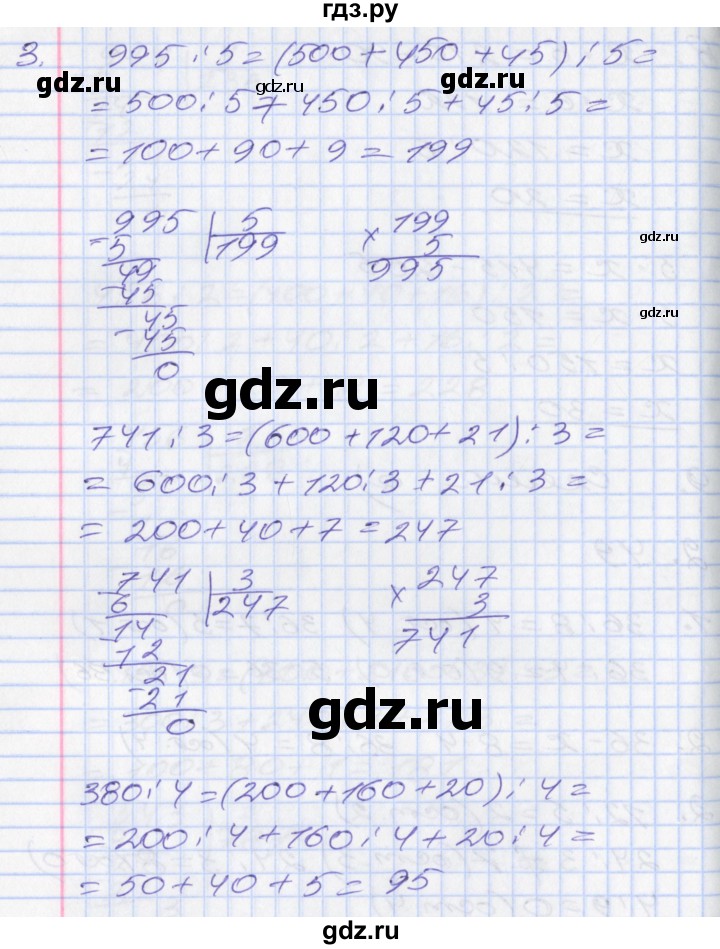 гдз.ру
3. 995 : 5 = (500 + 450 + 45) : 5 =
gdz.ru gdz.ru gdz.ru
= 500 : 5 + 450 : 5 + 45 : 5 =
= 100 + 90 + 9 = 199
995 | 5
- 5 199
49
- 45
45
- 45
0
× 199
5
995
gdz.ru
gdz.ru
gdz.ru
741 : 3 = (600 + 120 + 21) : 3 =
= 600 : 3 + 120 : 3 + 21 : 3 =
= 200 + 40 + 7 = 247
741 | 3
- 6 247
14
- 12
21
- 21
0
× 247
3
741
gdz.ru
380 : 4 = (200 + 160 + 20) : 4 =
= 200 : 4 + 160 : 4 + 20 : 4 =
= 50 + 40 + 5 = 95